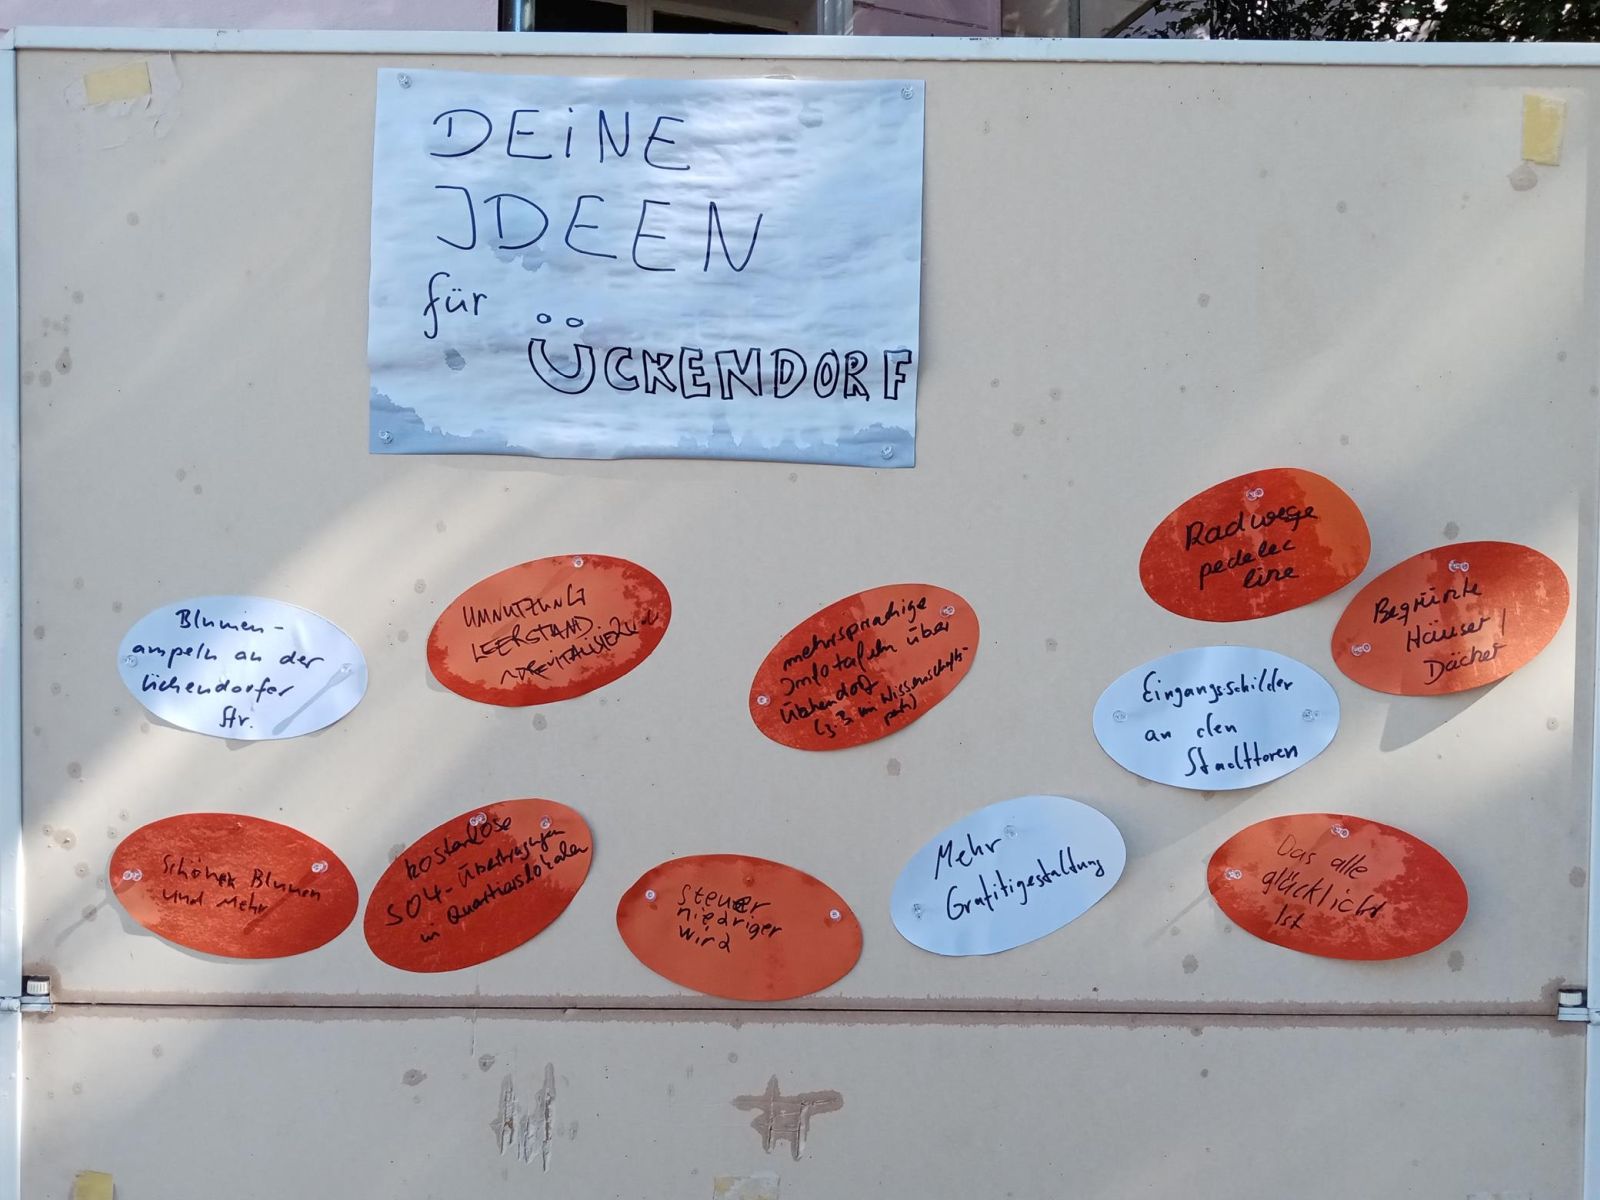 DEINE
IDEEN
für
ÜCKENDORF
Radwege
pedelec
line
Begrünte
Häuser /
Dächer
UMNUTZUNG
LEERSTAND
mehrsprachige
Infotafeln über
Ückendorf
(z.B. im Wissenschafts-
park)
Blumen-
ampeln an der
Ückendorfer
Str.
Eingangsschilder
an den
Stadttoren
Schöner Blumen
und Mehr
kostenlose
S04-Übertragungen
in Quartierslokalen
Steuer
niedriger
wird
Mehr
Grafitigestaltung
Das alle
glücklicht
Ist